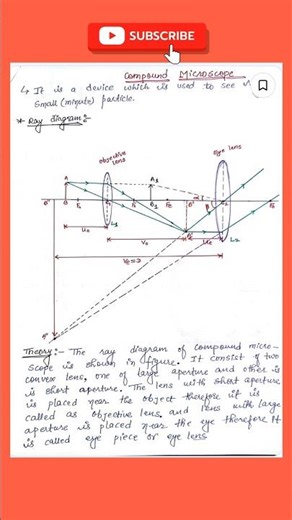 SUBSCRIBE
Compound Microscope
↳ It is a device which is used to see
Small (minute) particle.
* Ray diagram:-
objective
lens
eye lens
A A1
B" B F0 B1 FE B'
L1 L2
u0 v0 uE
VE = D
A' A"
Theory:- The ray diagram of compound micro-
scope is shown in figure. It consist of two
convex lens, one of large aperture and other is
is short aperture. The lens with short aperture
is placed near the object therefore it is
called as objective lens, and lens with large
aperture is placed near the eye therefore it
is called eye piece or eye lens